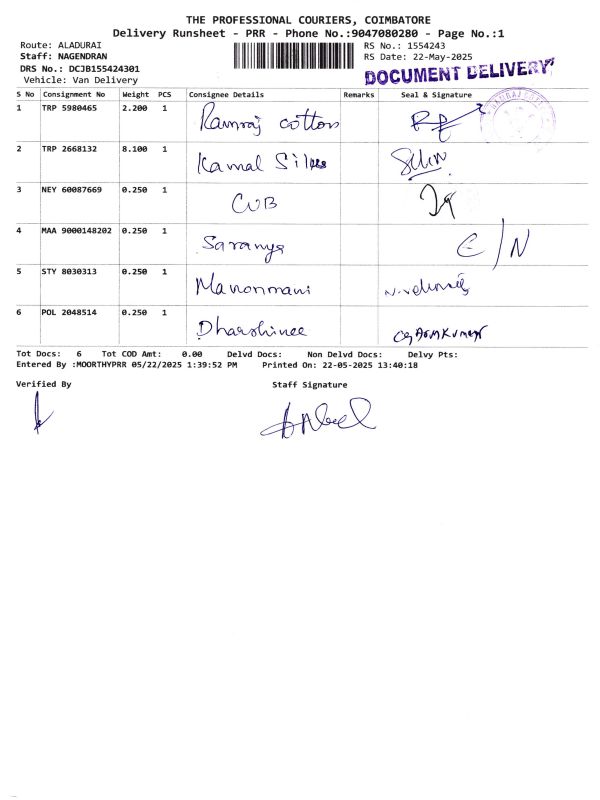 THE PROFESSIONAL COURIERS, COIMBATORE
Delivery Runsheet - PRR - Phone No.:9047080280 - Page No.:1
Route: ALADURAI RS No.: 1554243
Staff: NAGENDRAN RS Date: 22-May-2025
DRS No.: DCJB155424301
Vehicle: Van Delivery
DOCUMENT DELIVERY
S No Consignment No Weight PCS Consignee Details Remarks Seal & Signature
1 TRP 5980465 2.200 1 Ramraj cotton
2 TRP 2668132 8.100 1 Kamal Silks
3 NEY 60087669 0.250 1 CUB
4 MAA 9000148202 0.250 1 Saranya C/N
5 STY 8030313 0.250 1 Manonmani
6 POL 2048514 0.250 1 Dharshinee
Tot Docs: 6 Tot COD Amt: 0.00 Delvd Docs: Non Delvd Docs: Delvy Pts:
Entered By :MOORTHYPRR 05/22/2025 1:39:52 PM Printed On: 22-05-2025 13:40:18
Verified By Staff Signature